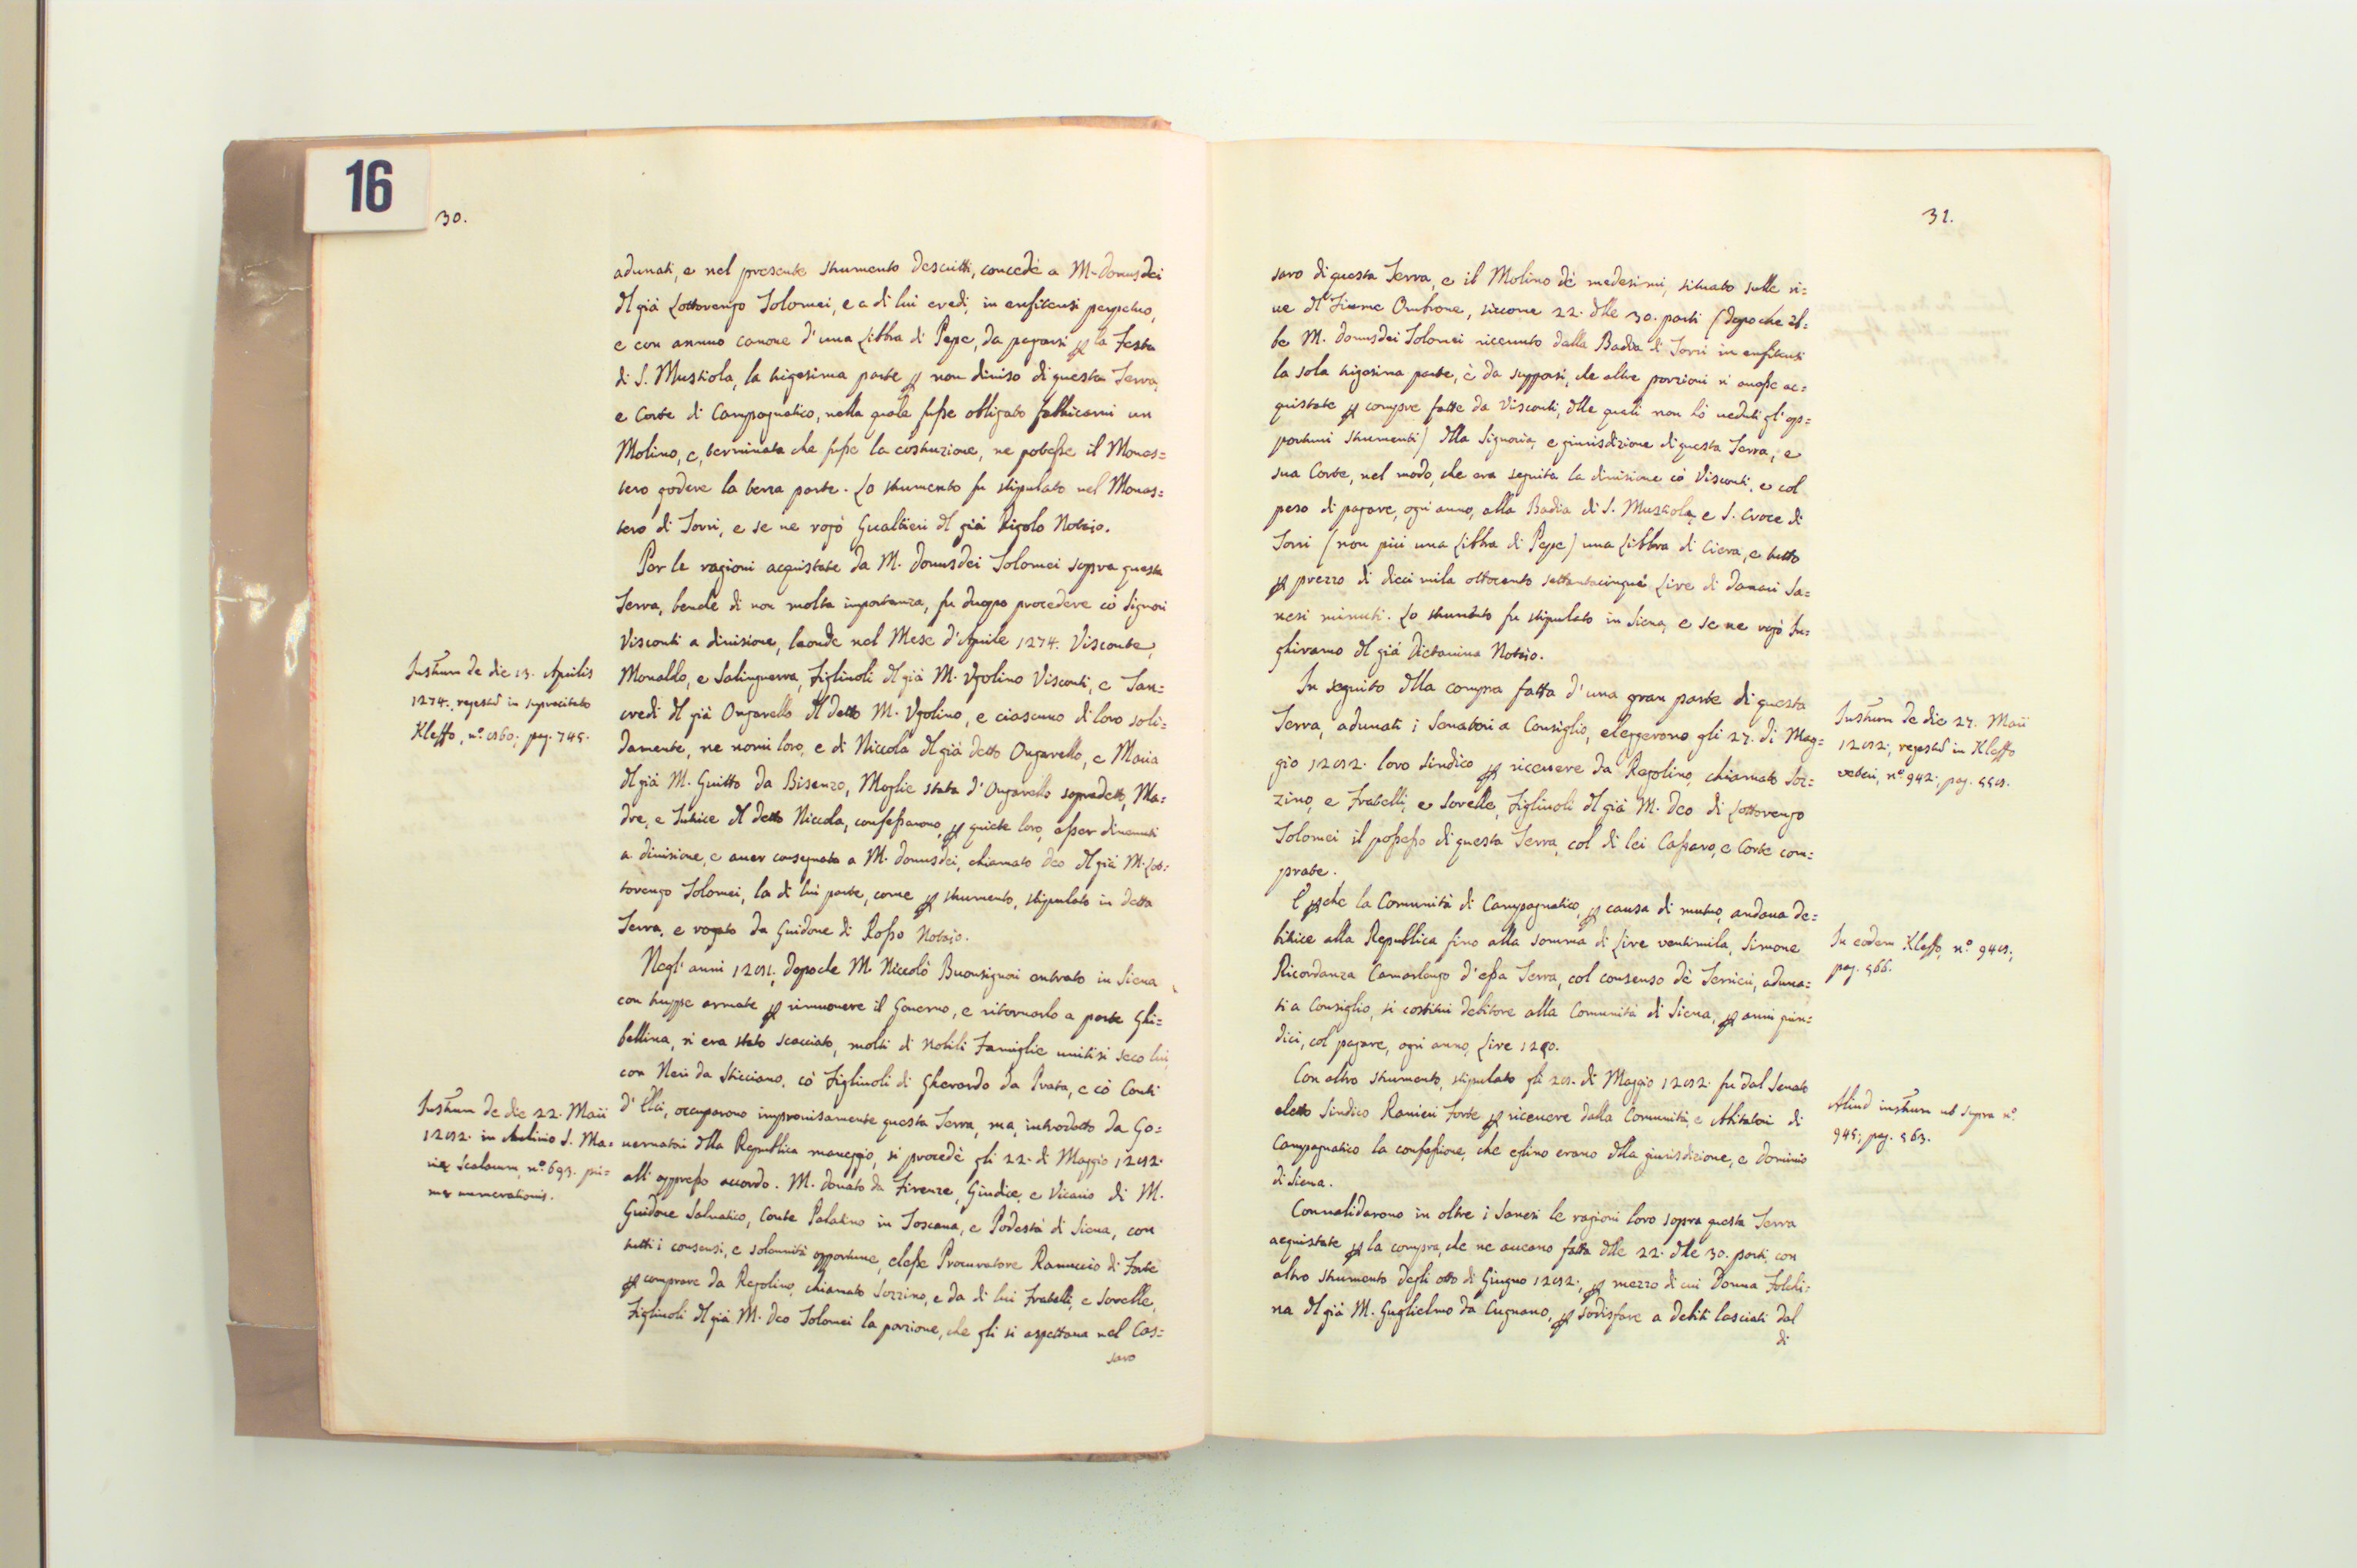 16
30.
adunati, e nel presente strumento descritti, concedè a M. Donusdei
dl già Lottorengo Tolomei, e a di lui eredi, in enfiteusi perpetuo,
e con annuo canone d'una Libbra di Pepe, da pagarsi p la Festa
di S. Mustiola, la trigesima parte p non diviso di questa Terra,
e Corte di Campagnatico, nella quale fusse obbligato fabbricarvi un
Molino, e, terminata che fusse la costruzione, ne potesse il Monas=
tero godere la terza parte. Lo strumento fu stipulato nel Monas=
tero di Torri, e se ne rogò Gualtieri dl già Rigolo Notaio.
Per le ragioni acquistate da M. Donusdei Tolomei sopra questa
Terra, benchè di non molta importanza, fu duopo procedere cò Signori
Visconti a divisione, laonde nel Mese d'Aprile 1274. Visconte,
Monaldo, e Salinguerra, Figliuoli dl già M. Vgolino Visconti, e Tan=
credi dl già Ongarello dl detto M. Vgolino, e ciascuno di loro soli=
damente, ne nomi loro, e di Niccola dl già detto Ongarello, e Maria
dl già M. Guitto da Bisenzo, Moglie stata d'Ongarello sopradetto, Ma=
dre, e Tutrice dl detto Niccola, confessarono, p quiete loro, esser divenuti
a divisione, e aver consegnato a M. Donusdei, chiamato Deo dl già M. Lot=
torengo Tolomei, la di lui parte, come p strumento, stipulato in detta
Terra, e rogato da Guidone di Rosso Notaio.
Instrum de die 13. Aprilis
1274. regestat in supracitato
Kleffo, nº 860; pag. 745.
Negl'anni 1291. dopochè M. Niccolò Buonsignori entrato in Siena
con truppe armate p rimuovere il Governo, e ritornarlo a parte Ghi=
bellina, vi era stato scacciato, molti di Nobili Famiglie unitisi seco lui,
con Neri da Sticciano, cò Figliuoli di Gherardo da Prata, e cò Conti
d'Elci, occuparono improvisamente questa Terra, ma, introdotto da Go=
vernatori dlla Republica maneggio, si procedè gli 22. di Maggio 1292.
all'appresso accordo. M. Donato da Firenze, Giudice, e Vicario di M.
Guidone Salvatico, Conte Palatino in Toscana, e Podestà di Siena, con
tutti i consensi, e solennità opportune, elesse Procuratore Ranuccio di Forte
p comprare da Regolino, chiamato Sozzino, e da di lui Fratelli, e Sorelle,
Figliuoli dl già M. Deo Tolomei la porzione, che gli si aspettava nel Cas=
saro
Instrum de die 22. Maii
1292. in Archivio S. Ma=
riæ Scalarum, nº 693. pri=
mæ numerationis.
31.
saro di questa Terra, e il Molino dè medesimi, situato sulle ri=
ve dl Fiume Ombrone, siccome 22. dlle 30. parti (dopo che eb=
be M. Donusdei Tolomei ricevuto dalla Badia di Torri in enfiteusi
la sola trigesima parte, è da supporsi, che altre porzioni vi avesse ac=
quistate p compre fatte da Visconti, dlle quali non hò veduti gl'op=
portuni strumenti) dlla Signoria, e giurisdizione di questa Terra, e
sua Corte, nel modo, che era seguita la divisione cò Visconti, e col
peso di pagare, ogni anno, alla Badia di S. Mustiola, e S. Croce di
Torri (non più una Libbra di Pepe) una Libbra di Ciera, e tutto
p prezzo di dieci mila ottocento settantacinque Lire di danari Sa=
nesi minuti. Lo strumento fu stipulato in Siena, e se ne rogò In=
ghiramo dl già Dietaiuva Notaio.
In seguito dlla compra fatta d'una gran parte di questa
Terra, adunati i Senatori a Consiglio, eleggerono gli 27. di Mag=
gio 1292. loro Sindico p ricevere da Regolino, chiamato Soz=
zino, e Fratelli, e Sorelle, Figliuoli dl già M. Deo di Lottorengo
Tolomei il possesso di questa Terra, col di lei Cassaro, e Corte com=
prate.
Instrum de die 27. Maii
1292, regestat in Kleffo
veteri, nº 942; pag. 559.
E pchè la Comunità di Campagnatico, p causa di mutuo, andava de=
bitrice alla Republica fino alla somma di Lire ventimila, Simone
Ricordanza Camarlengo d'essa Terra, col consenso dè Terrieri, aduna=
ti a Consiglio, si costituì debitore alla Comunità di Siena, p anni quin=
dici, col pagare, ogni anno, Lire 1250.
In eodem Kleffo, nº 949;
pag. 566.
Con altro strumento, stipulato gli 29. di Maggio 1292. fu dal Senato
eletto Sindico Ranieri Forte p ricevere dalla Comunità, e Abitatori di
Campagnatico la confessione, che eglino erano dlla giurisdizione, e dominio
di Siena.
Aliud instrum ut supra nº
945; pag. 563.
Convalidarono in oltre i Sanesi le ragioni loro sopra questa Terra
acquistate p la compra, che ne aveano fatta dlle 22. dlle 30. parti, con
altro strumento degli otto di Giugno 1292., p mezzo di cui Donna Folchi=
na dl già M. Guglielmo da Cugnano, p sodisfare a debiti lasciati dal
di